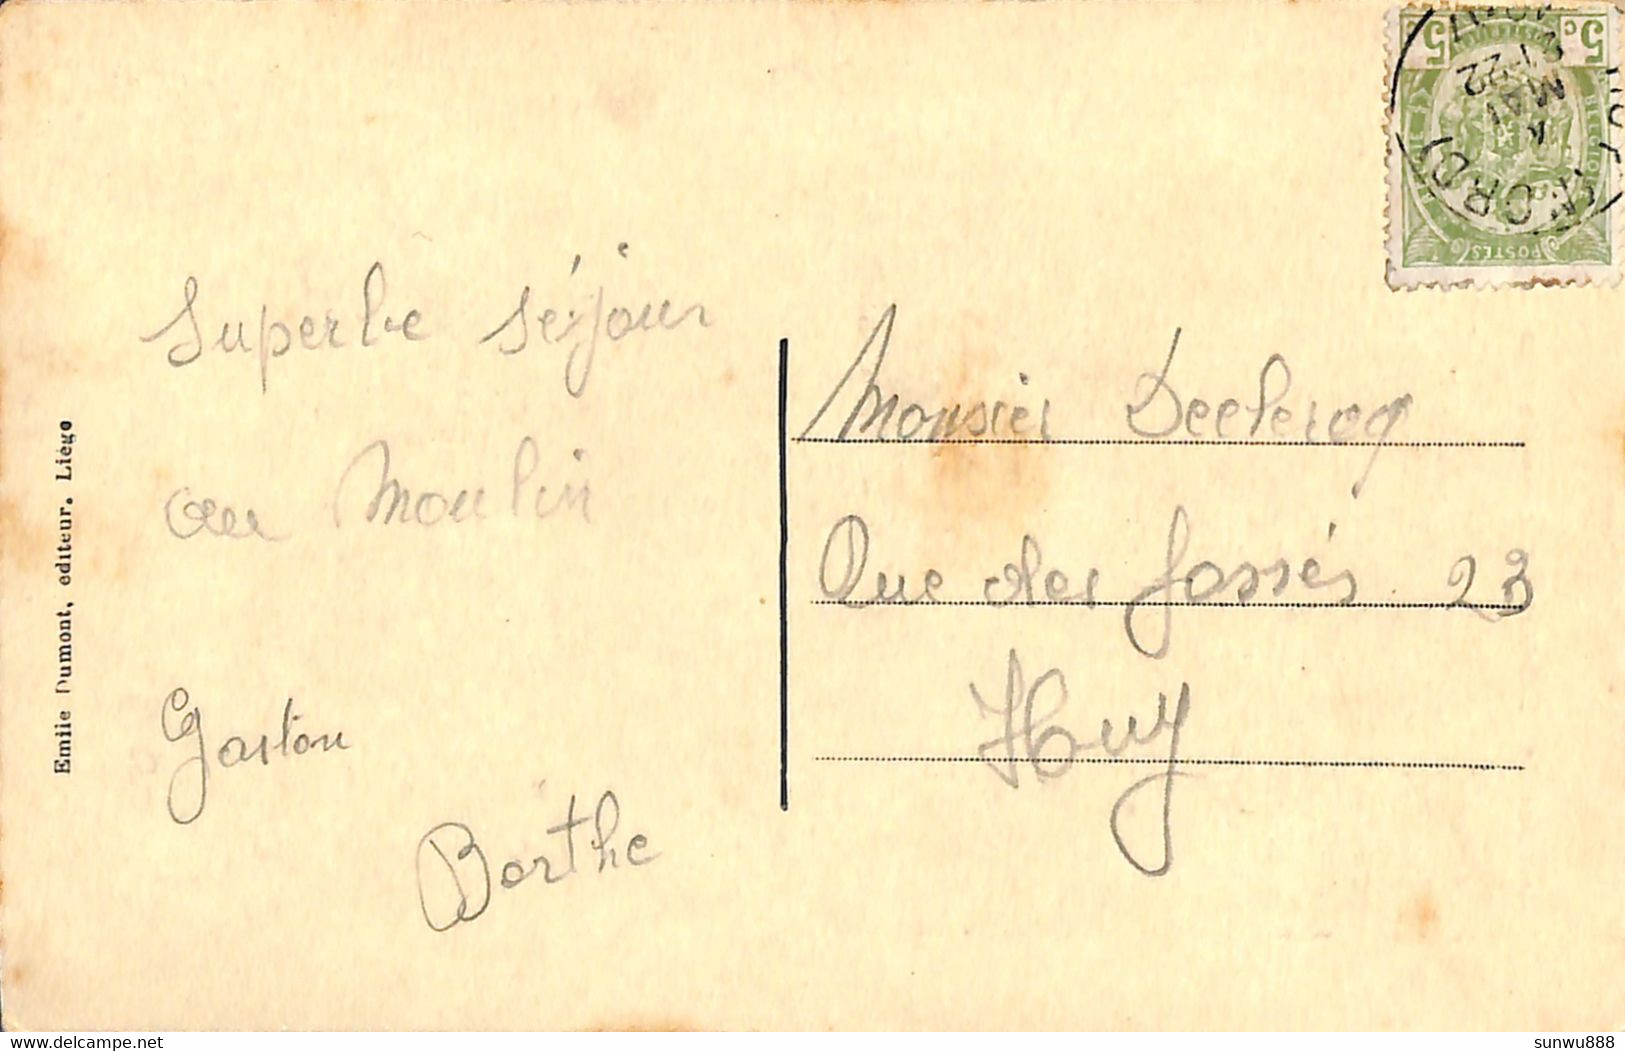 Superbe séjour
au Moulin
Gaston
Berthe
Emile Dumont, editeur. Liege
Monsier Declercq
Rue des fossés 23
Huy
5 c
c 5
BELGIQUE
POSTES
MAI
22
(NORD)
delcampe.net
sunwu888